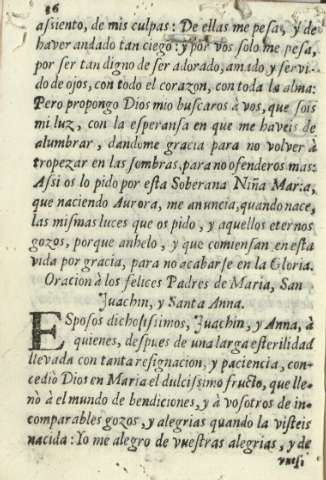 36
assiento, de mis culpas: De ellas me pesa, y de
haver andado tan ciego: y por vos solo me pesa,
por ser tan digno de ser adorado, amado y servi-
do de ojos, con todo el corazon, con toda la alma:
Pero propongo Dios mio buscaros à vos, que sois
mi luz, con la esperansa en que me haveis de
alumbrar, dandome gracia para no volver à
tropezar en las sombras, para no ofenderos mas:
Assi os lo pido por esta Soberana Niña Maria,
que naciendo Aurora, me anuncia, quando nace,
las mismas luces que os pido, y aquellos eternos
gozos, porque anhelo, y que comiensan en esta
vida por gracia, para no acabarse en la Gloria.
Oracion à los felices Padres de Maria, San
Juachin, y Santa Anna.
ESposos dichosissimos, Juachin, y Anna, à
quienes, despues de una larga esterilidad
llevada con tanta resignacion, y paciencia, con-
cediò Dios en Maria el dulcissimo fructo, que lle-
nò à el mundo de bendiciones, y à vosotros de in-
comparables gozos, y alegrias quando la visteis
nacida: Yo me alegro de vuestras alegrias, y de
vuest